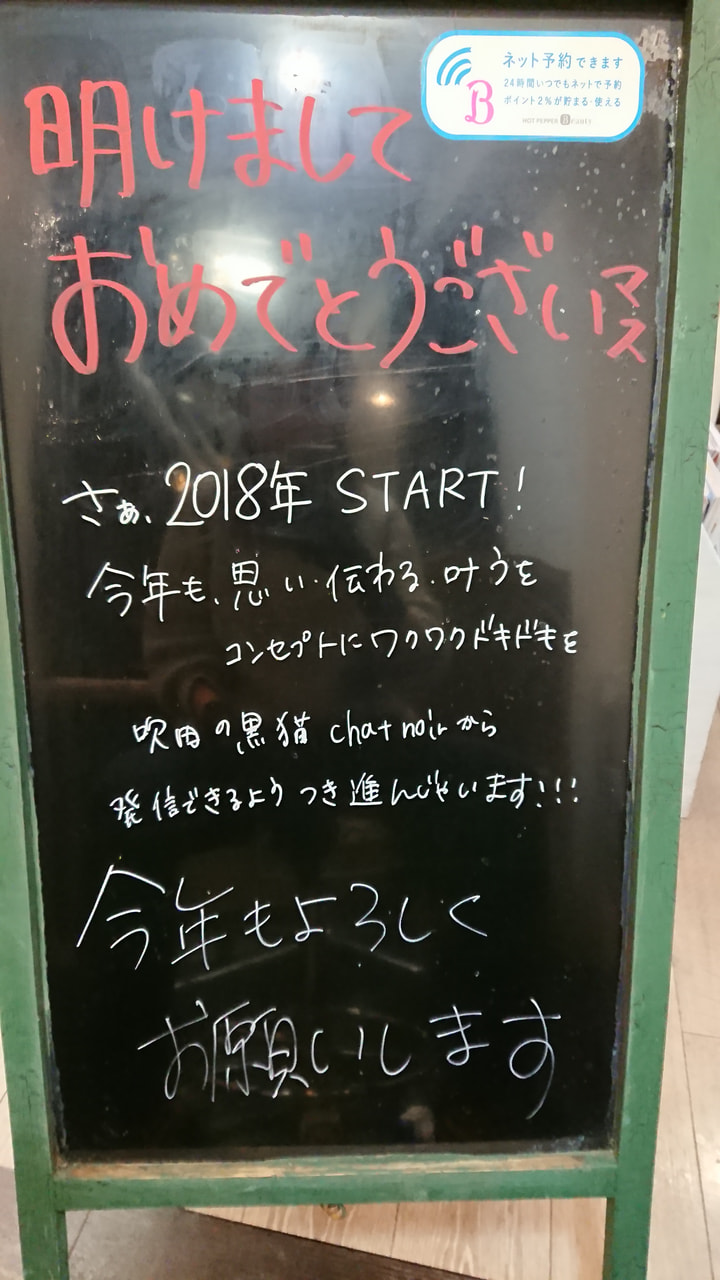 ネット予約できます
24時間いつでもネットで予約
ポイント2%が貯まる・使える
B
HOT PEPPER Beauty
明けまして
おめでとうございマス
さぁ、2018年 START!
今年も、思い・伝わる・叶うを
コンセプトにワクワクドキドキを
吹田の黒猫 chat noirから
発信できるようつき進んじゃいます!!!
今年もよろしく
お願いします